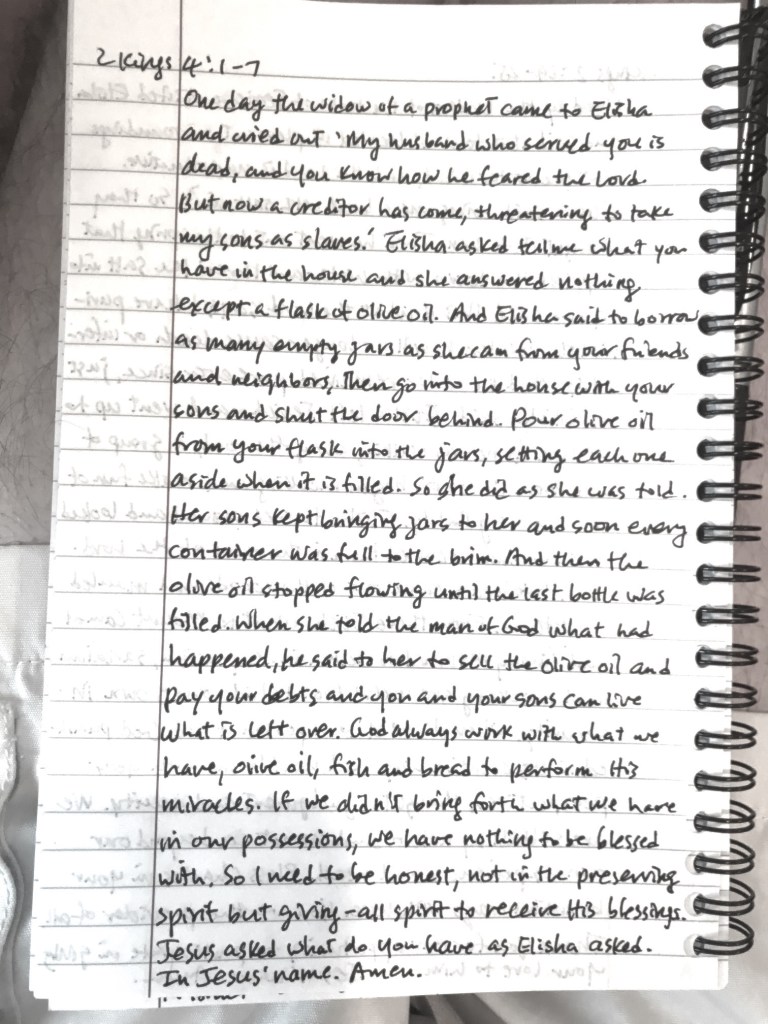 2 Kings 4:1-7
One day the widow of a prophet came to Elisha
and cried out 'My husband who served you is
dead, and you know how he feared the Lord.
But now a creditor has come, threatening to take
my sons as slaves.' Elisha asked tell me what you
have in the house and she answered nothing
except a flask of olive oil. And Elisha said to borrow
as many empty jars as she can from your friends
and neighbors, Then go into the house with your
sons and shut the door behind. Pour olive oil
from your flask into the jars, setting each one
aside when it is filled. So she did as she was told.
Her sons kept bringing jars to her and soon every
container was full to the brim. And then the
olive oil stopped flowing until the last bottle was
filled. When she told the man of God what had
happened, he said to her to sell the olive oil and
pay your debts and you and your sons can live
what is left over. God always work with what we
have, olive oil, fish and bread to perform His
miracles. If we didn't bring forth what we have
in our possessions, we have nothing to be blessed
with. So I need to be honest, not in the preserving
spirit but giving-all spirit to receive His blessings.
Jesus asked what do you have as Elisha asked.
In Jesus' name. Amen.